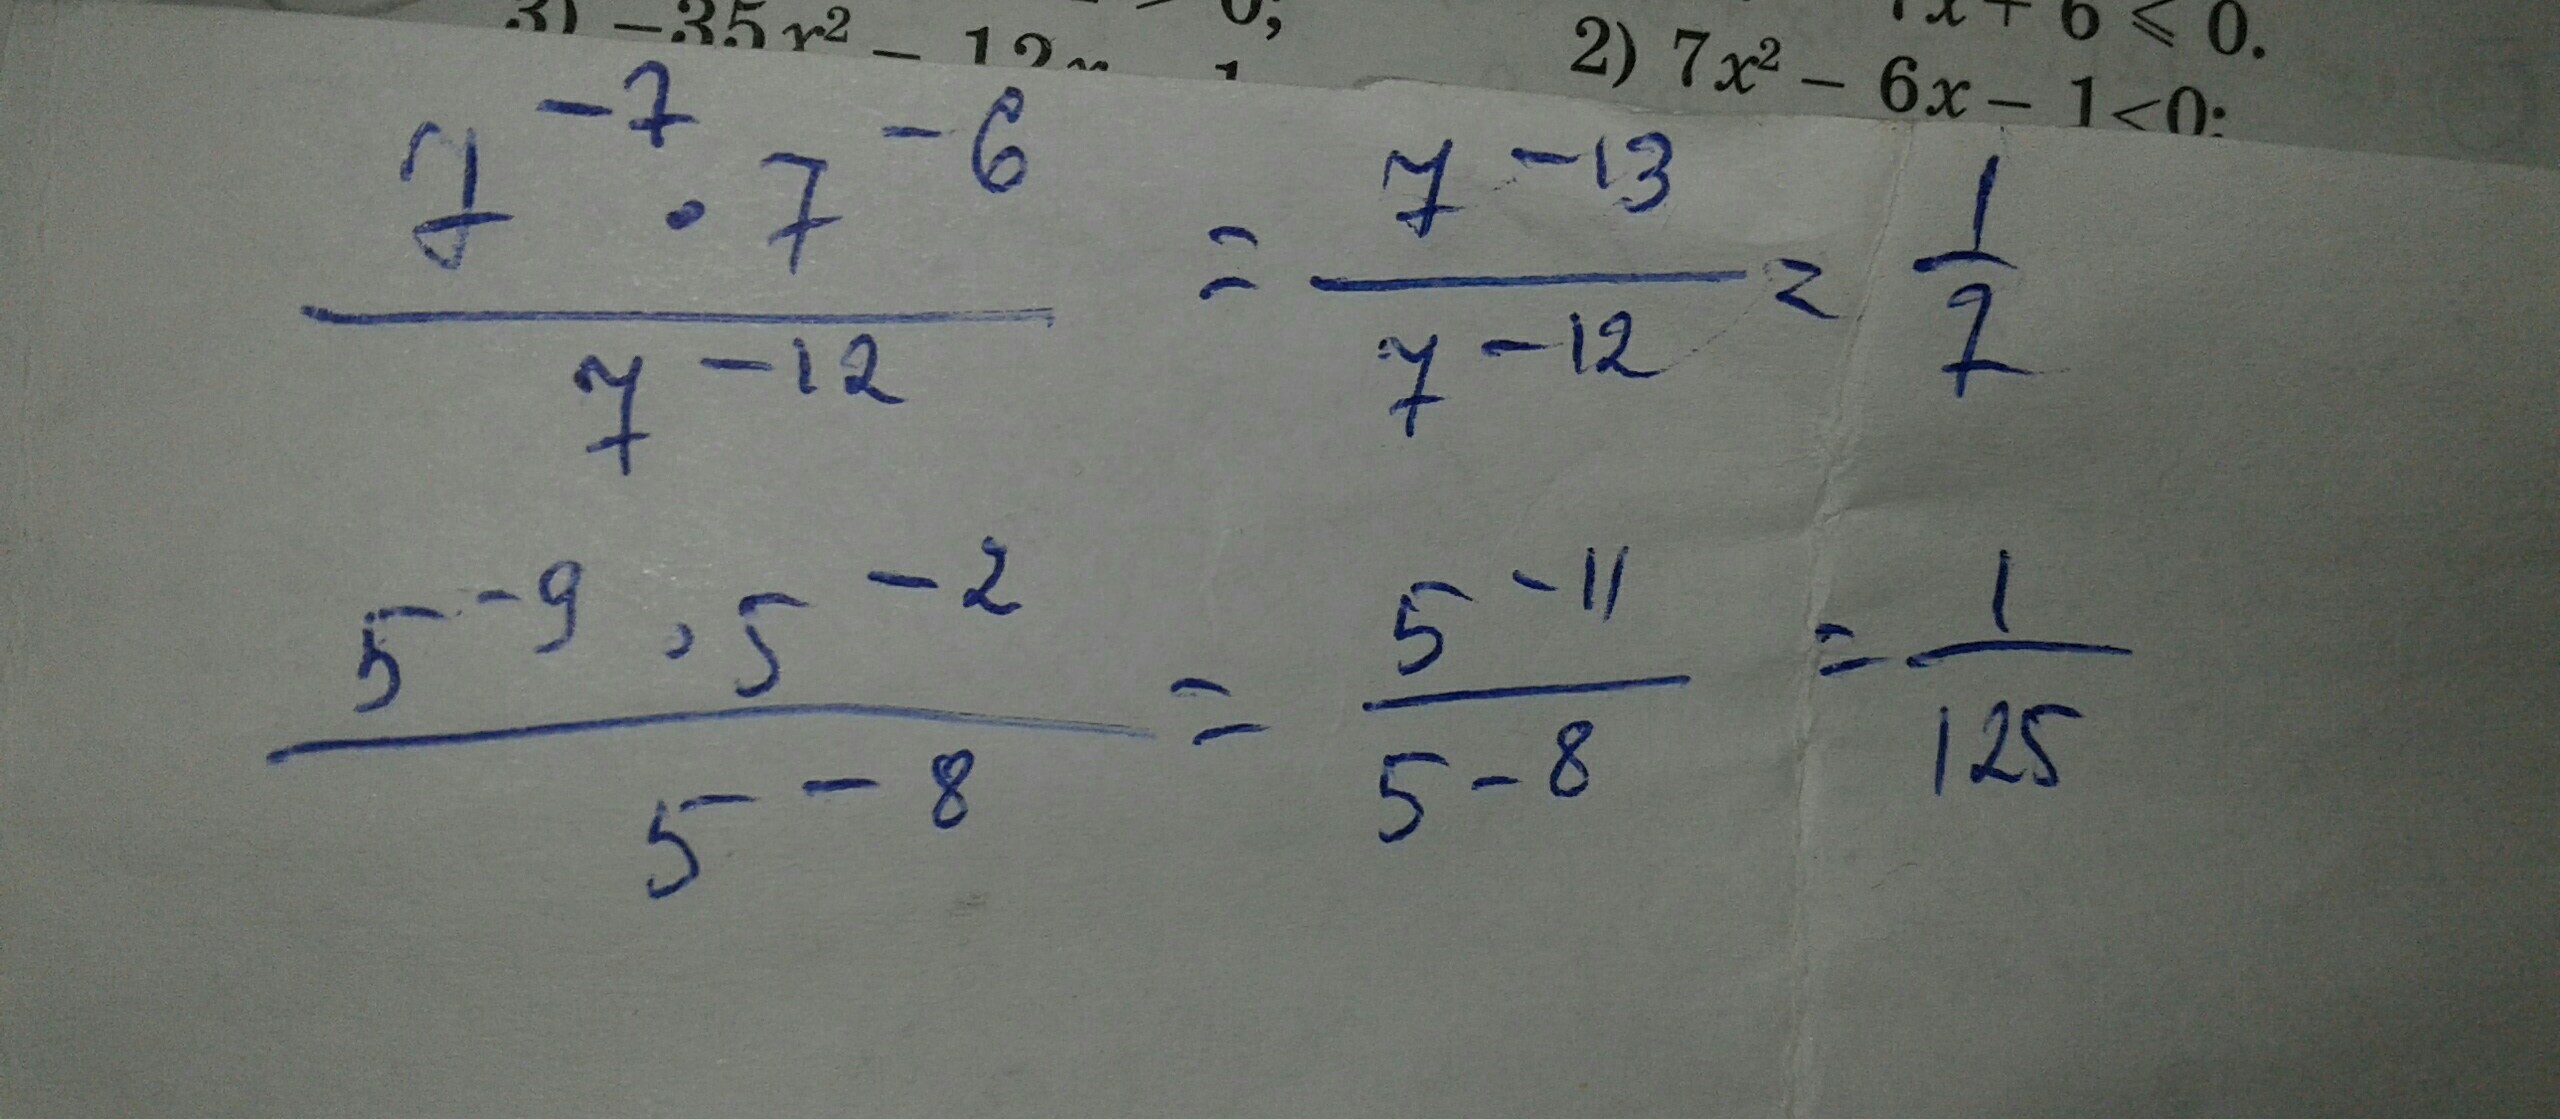 3) −35x² − 12x 1 0;
7x + 6 ⩽ 0.
2) 7x² − 6x − 1 < 0;
7⁻⁷ · 7⁻⁶ / 7⁻¹² = 7⁻¹³ / 7⁻¹² = 1/7
5⁻⁹ · 5⁻² / 5⁻⁸ = 5⁻¹¹ / 5⁻⁸ = 1/125